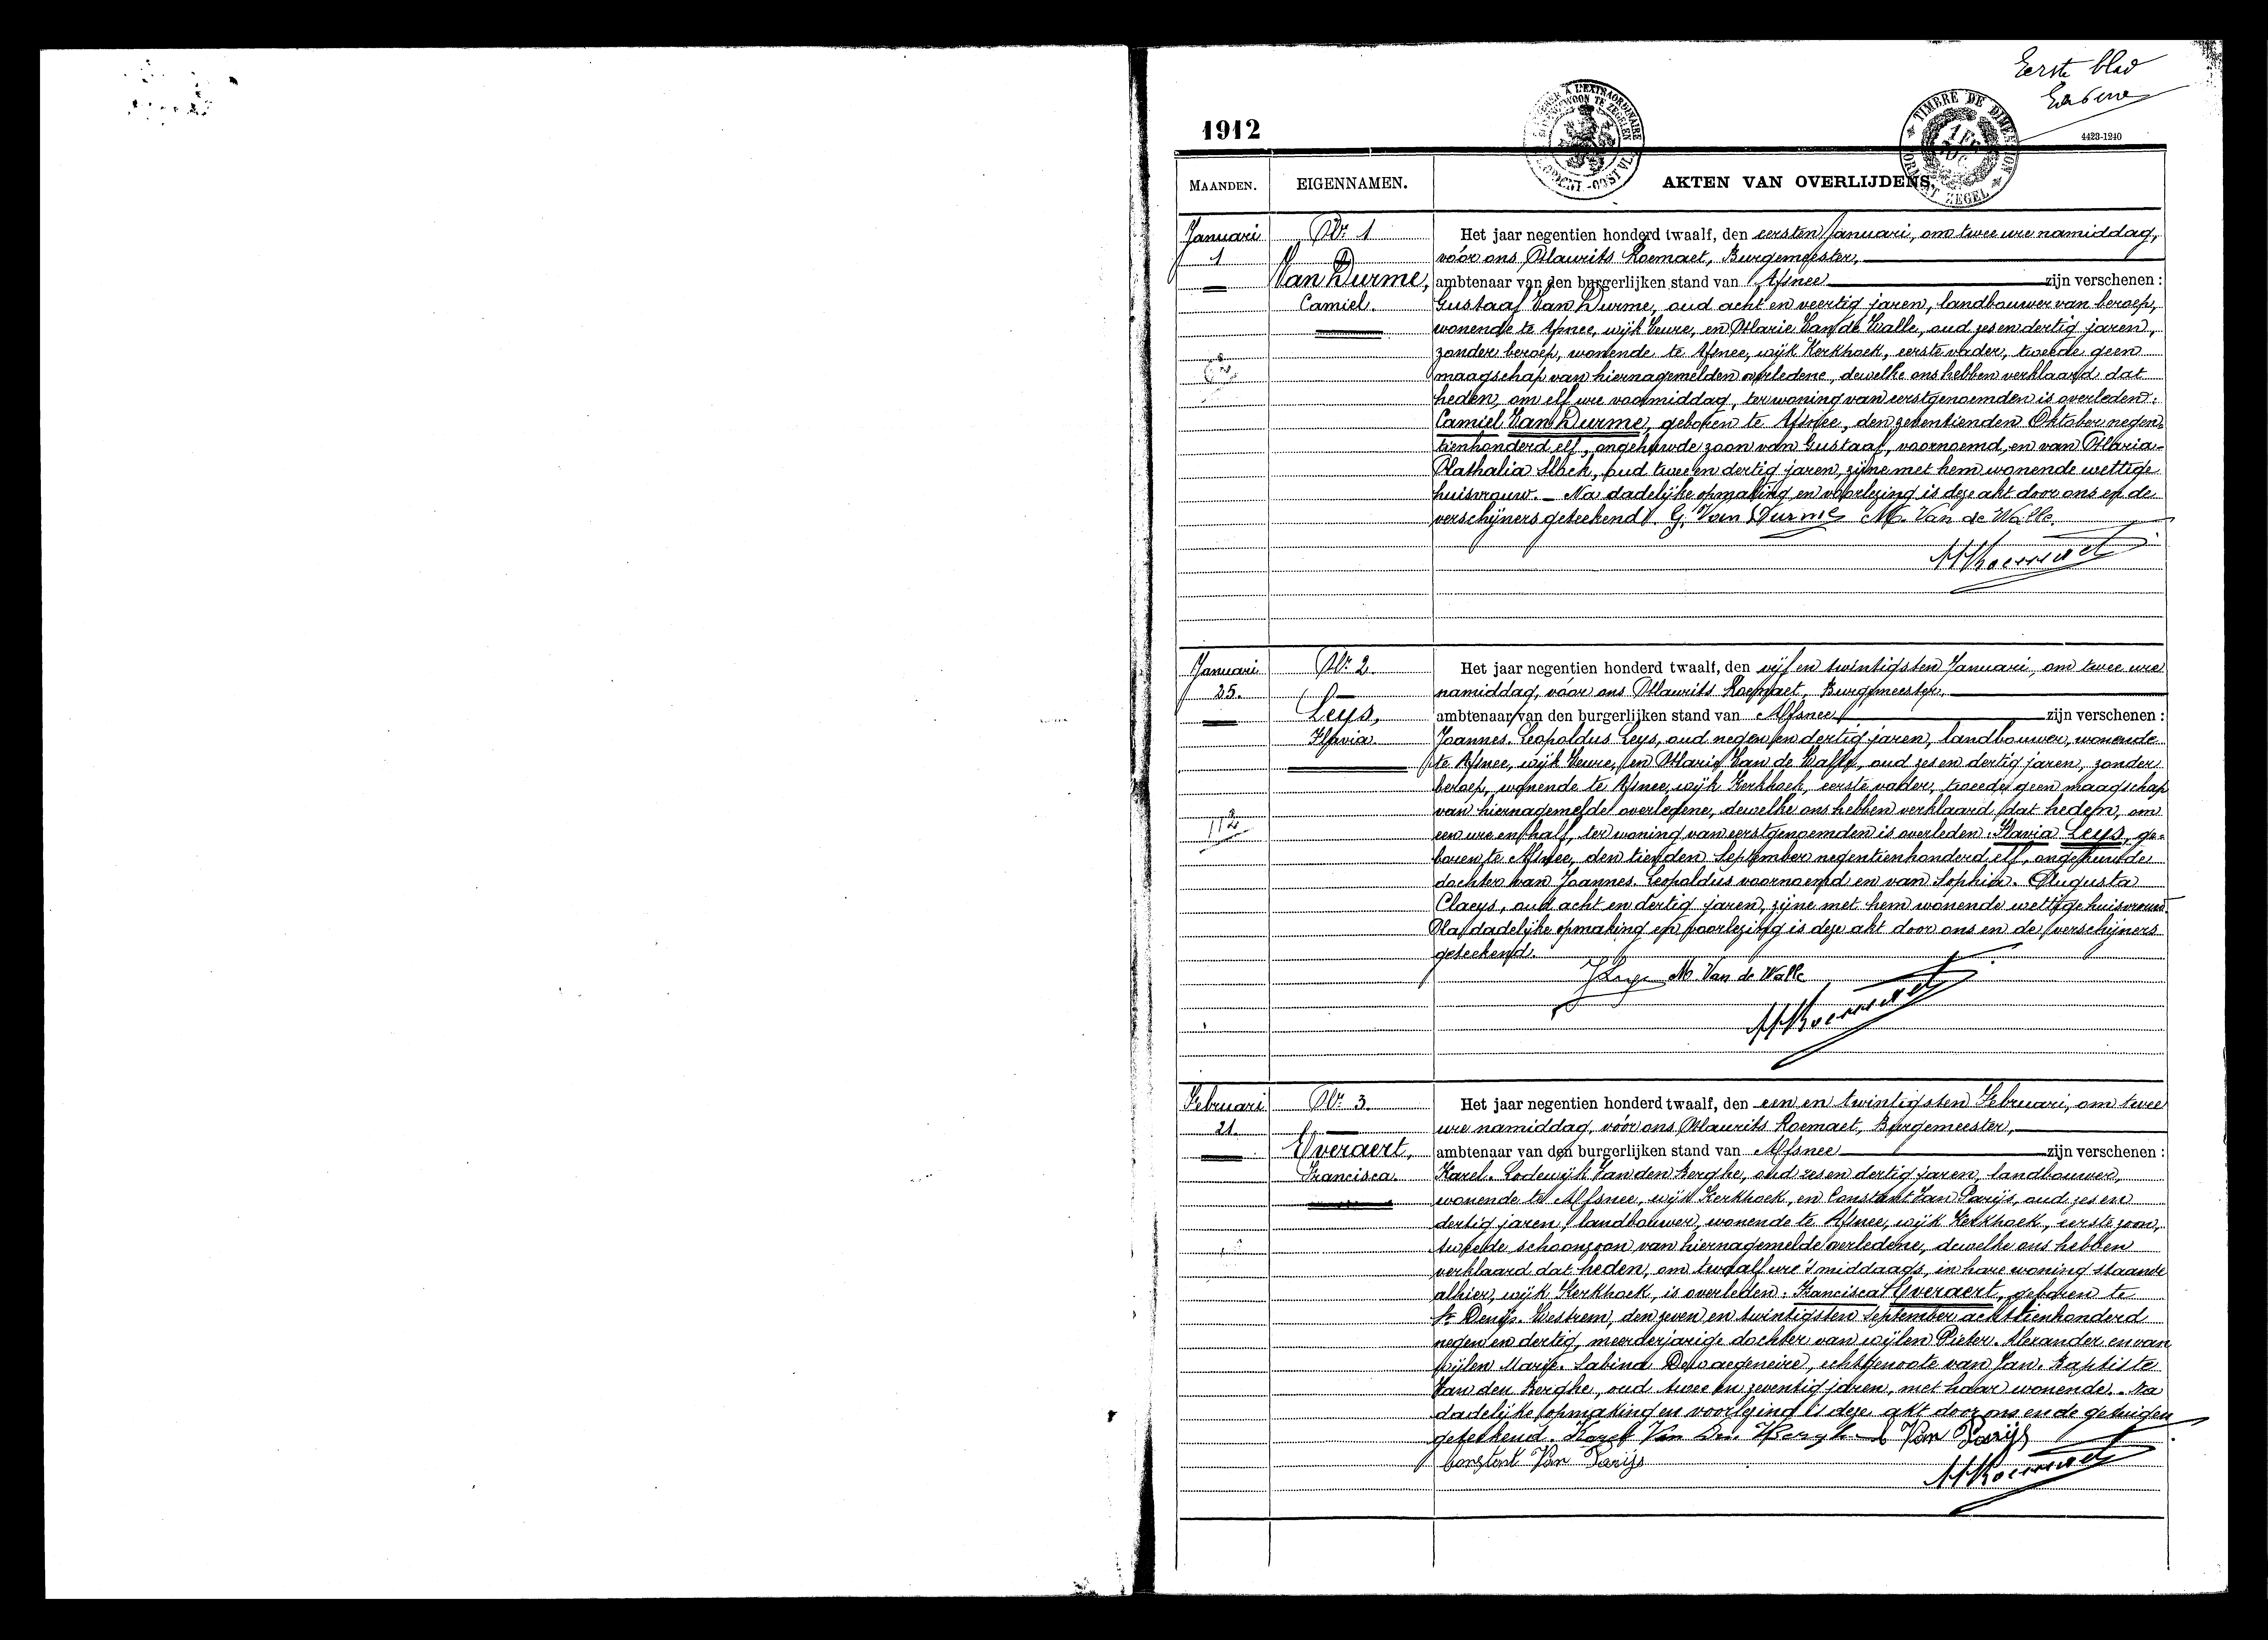 Eerste blad
1912
4423-1240
TIMBRE DE DIMENSION
MAANDEN.
EIGENNAMEN.
AKTEN VAN OVERLIJDENS.
Januari
1
Nr. 1
Van Durme,
Camiel.
Het jaar negentien honderd twaalf, den eersten Januari, om twee ure namiddag,
vóór ons Maurits Roemaet, Burgemeester,
ambtenaar van den burgerlijken stand van Afsnee zijn verschenen :
Gustaaf Van Durme, oud acht en veertig jaren, landbouwer van beroep,
wonende te Afsnee, wijk Veure, en Marie Van de Walle, oud zes en dertig jaren,
zonder beroep, wonende te Afsnee, wijk Kerkhoek, eerste vader, tweede geen
maagschap van hiernagemelden overledene, dewelke ons hebben verklaard dat
heden, om elf ure voormiddag, ter woning van eerstgenoemden is overleden:
Camiel Van Durme, geboren te Afsnee, den zeventienden Oktober negen-
tienhonderd elf, ongehuwde zoon van Gustaaf, voornoemd, en van Maria-
Nathalia Slock, oud twee en dertig jaren, zijne met hem wonende wettige
huisvrouw. — Na dadelijke opmaking en voorlezing is deze akt door ons en de
verschijners geteekend. G. Van Durme M. Van de Walle.
M Roemaet
Januari
25.
Nr. 2.
Leys,
Flavia.
112
Het jaar negentien honderd twaalf, den vijf en twintigsten Januari, om twee ure
namiddag, vóór ons Maurits Roemaet, Burgemeester,
ambtenaar van den burgerlijken stand van Afsnee zijn verschenen :
Joannes-Leopoldus Leys, oud negen en dertig jaren, landbouwer, wonende
te Afsnee, wijk Veure, en Marie Van de Walle, oud zes en dertig jaren, zonder
beroep, wonende te Afsnee, wijk Kerkhoek, eerste vader, tweede geen maagschap
van hiernagemelde overledene, dewelke ons hebben verklaard dat heden, om
een ure en half, ter woning van eerstgenoemden is overleden: Flavia Leys, ge-
boren te Afsnee, den tienden September negentienhonderd elf, ongehuwde
dochter van Joannes-Leopoldus voornoemd en van Sophia-Augusta
Claeys, oud acht en dertig jaren, zijne met hem wonende wettige huisvrouw.
Na dadelijke opmaking en voorlezing is deze akt door ons en de verschijners
geteekend.
J Leys M. Van de Walle
M Roemaet
Februari
21.
Nr. 3.
Everaert,
Francisca.
Het jaar negentien honderd twaalf, den een en twintigsten Februari, om twee
ure namiddag, vóór ons Maurits Roemaet, Burgemeester,
ambtenaar van den burgerlijken stand van Afsnee zijn verschenen :
Karel-Lodewijk Van den Berghe, oud zes en dertig jaren, landbouwer,
wonende te Afsnee, wijk Kerkhoek, en Constant Van Parijs, oud zes en
dertig jaren, landbouwer, wonende te Afsnee, wijk Kerkhoek, eerste zoon,
tweede schoonzoon van hiernagemelde overledene, dewelke ons hebben
verklaard dat heden, om twaalf ure 's middags, in hare woning staande
alhier, wijk Kerkhoek, is overleden: Francisca Everaert, geboren te
St Denijs-Westrem, den zeven en twintigsten September achttienhonderd
negen en dertig, meerderjarige dochter van wijlen Pieter-Alexander en van
wijlen Marie-Sabina Dewaegeneire, echtgenoote van Jan-Baptiste
Van den Berghe, oud twee en zeventig jaren, met haar wonende. Na
dadelijke opmaking en voorlezing is deze akt door ons en de getuigen
geteekend. Karel Van Den Berghe C Van Parijs
Constant Van Parijs
M Roemaet